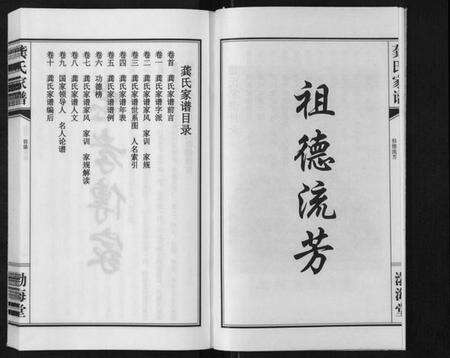 龚氏家谱
祖德流芳
祖德流芳
渤海堂
龚氏家谱目录
卷首 龚氏家谱前言
卷一 龚氏家谱字派
卷二 龚氏家谱家风 家训 家规
卷三 龚氏家谱世系图 人名索引
卷四 龚氏家谱年表
卷五 龚氏家谱谱例
卷六 功德榜
卷七 龚氏家谱家风 家训 家规解读
卷八 龚氏家谱人文
卷九 国家领导人 名人论谱
卷十 龚氏家谱编后
龚氏家谱
目录
渤海堂